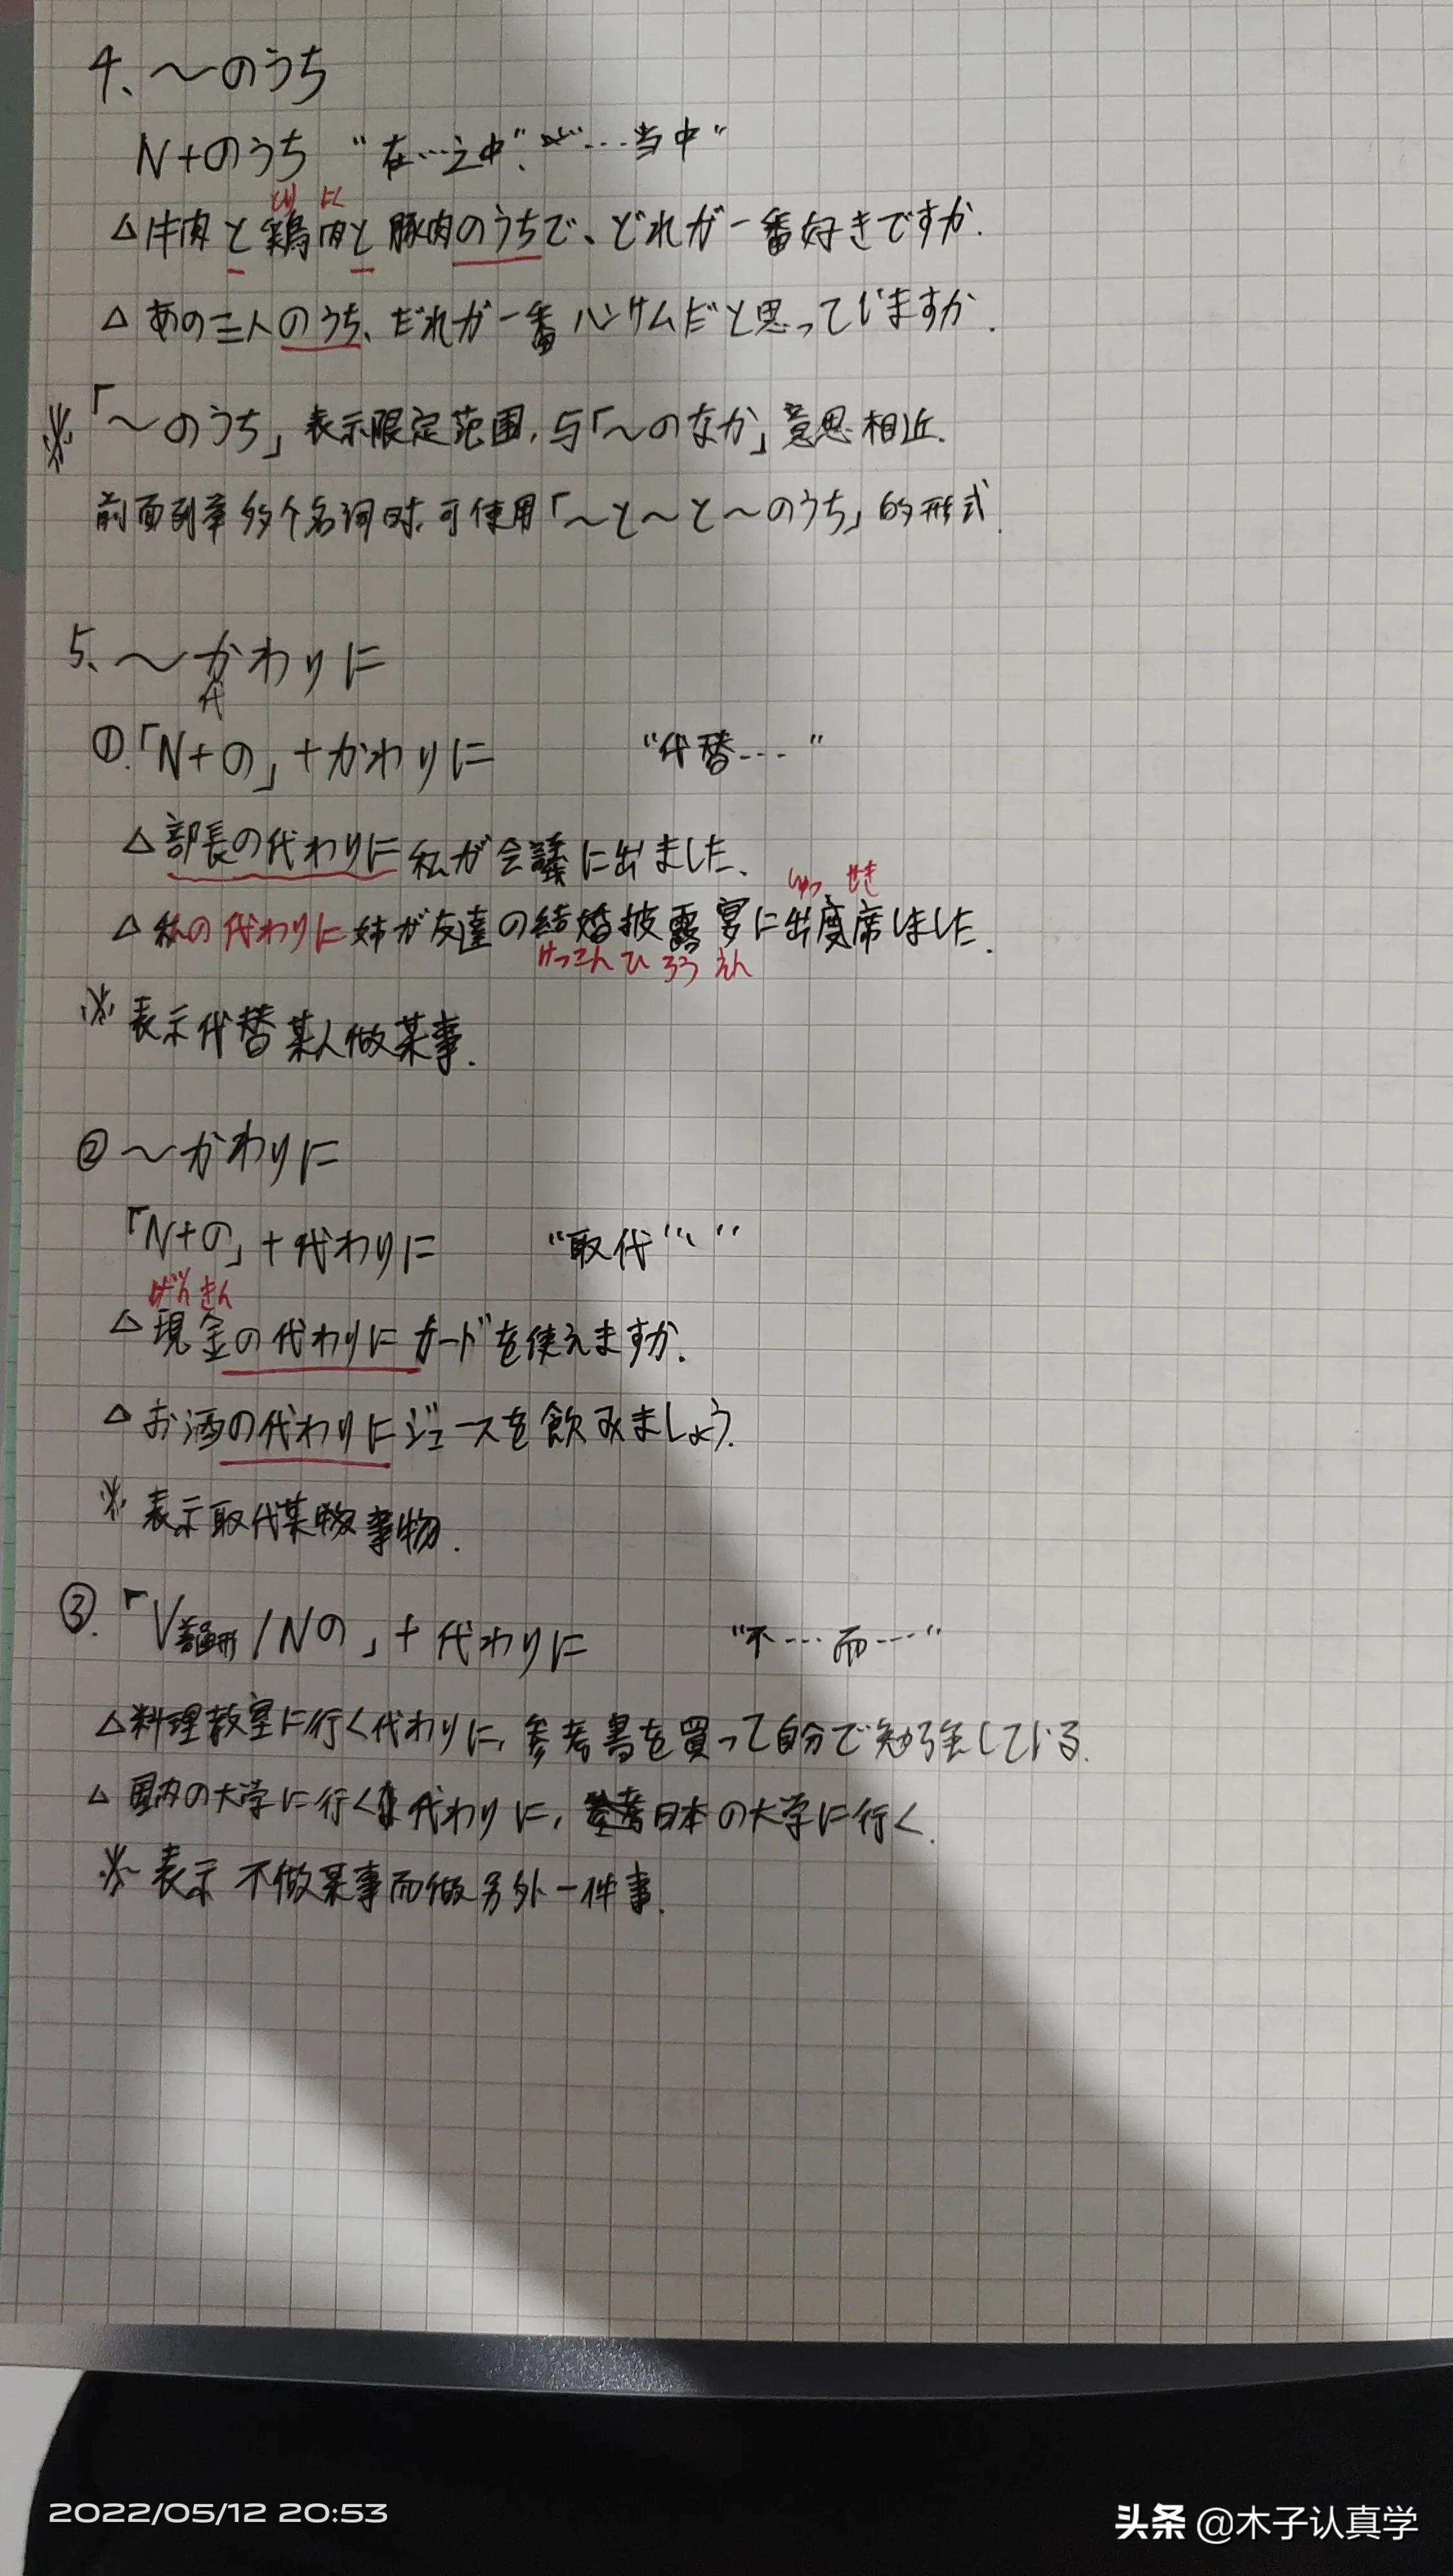 4、～のうち
N+のうち "在…之中"、"…当中"
とり にく
△牛肉と鶏肉と豚肉のうちで、どれが一番好きですか.
△あの三人のうち、だれが一番ハンサムだと思っていますか.
※「～のうち」表示限定范围,与「～のなか」意思相近.
前面列举多个名词时,可使用「～と～と～のうち」的形式.
5、～かわりに
代
①.「N+の」+かわりに "代替…"
△部長の代わりに私が会議に出ました.
しゅっ せき
△私の代わりに姉が友達の結婚披露宴に出席しました.
けっこんひ ろう えん
※表示代替某人做某事.
②～かわりに
「N+の」+代わりに "取代…"
げん きん
△現金の代わりにカードを使えますか.
△お酒の代わりにジュースを飲みましょう.
※表示取代某事物.
③.「V普通形/Nの」+代わりに "不…而…"
△料理教室に行く代わりに,参考書を買って自分で勉強している.
△国内の大学に行く代わりに,日本の大学に行く.
※表示不做某事而做另外一件事.
2022/05/12 20:53
头条 @木子认真学